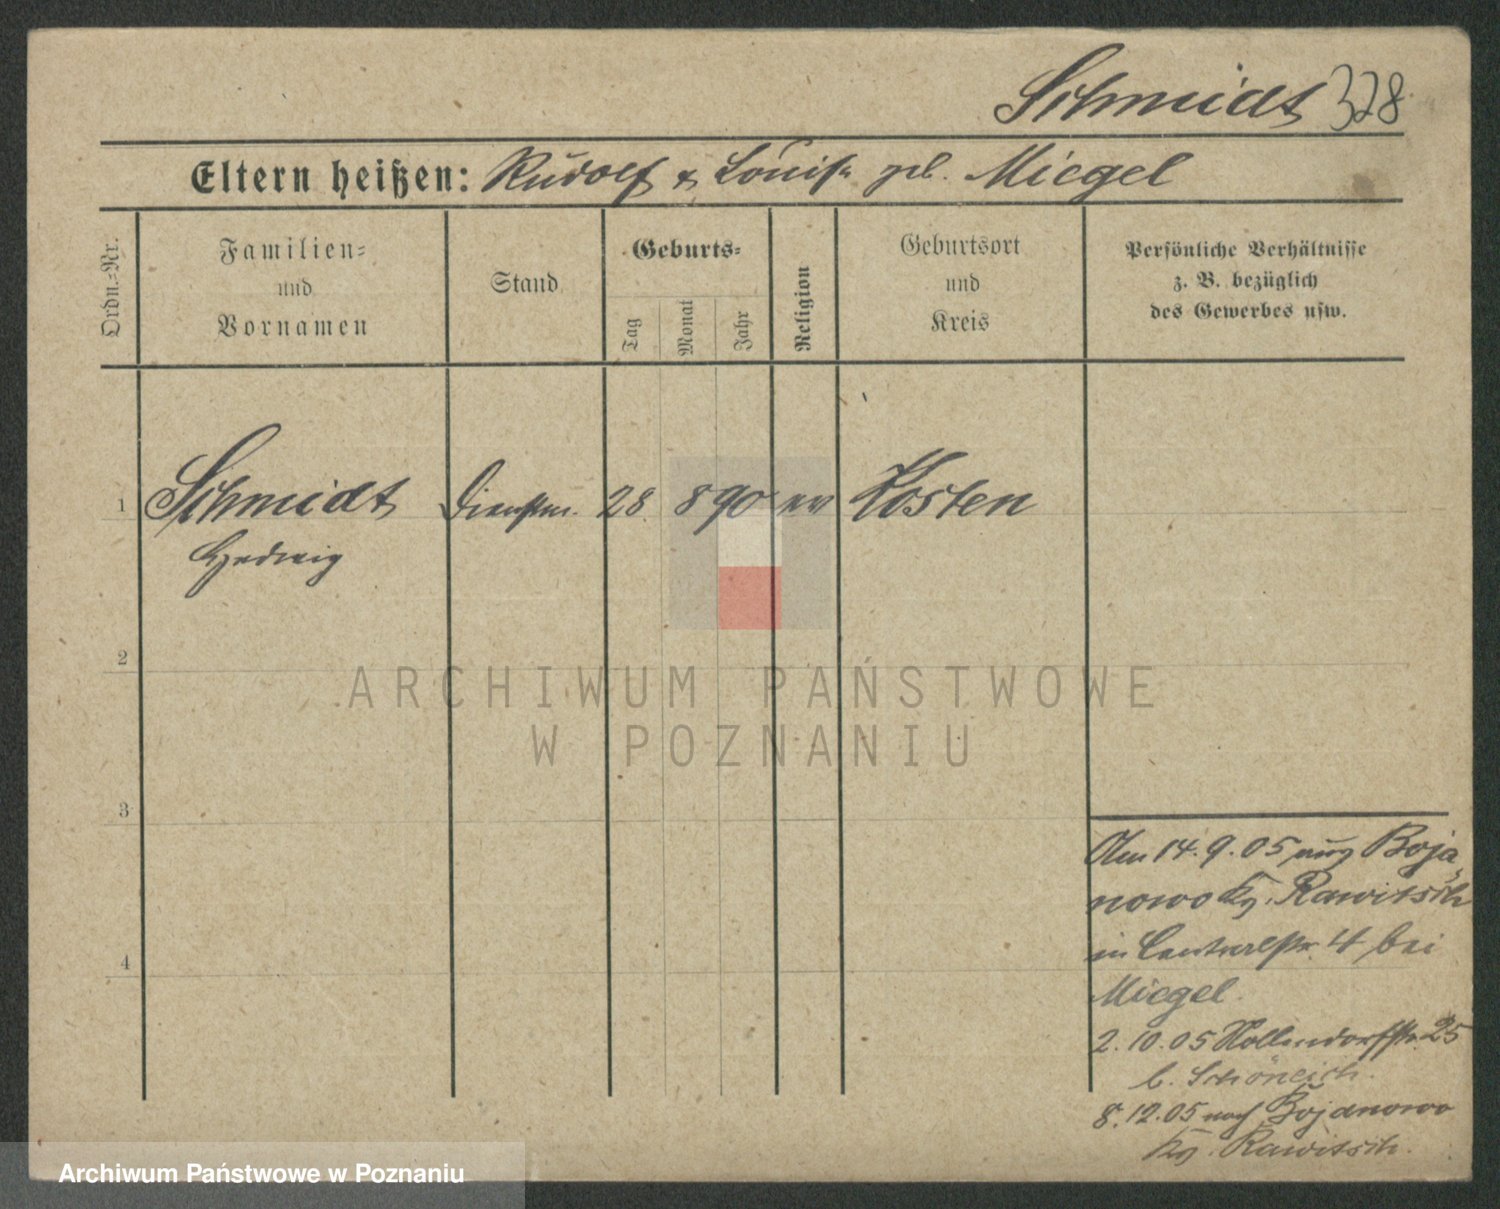 Schmidt 328
Eltern heißen: Rudolf & Louise geb. Miegel
Ordn.-Nr.
Familien-
und
Vornamen
Stand
Geburts-
Tag
Monat
Jahr
Religion
Geburtsort
und
Kreis
Persönliche Verhältnisse
z. B. bezüglich
des Gewerbes usw.
1 Schmidt Dienstm. 28 8 90 ev Kosten
Hedwig
2
3
4
Am 14.9.05 aus Boja
nowo Kr. Rawitsch
in Centralstr. 4 bei
Miegel.
2.10.05 Hollendorfstr. 25
b. Schöneich.
8.12.05 nach Bojanowo
Kr. Rawitsch.
ARCHIWUM PAŃSTWOWE
W POZNANIU
Archiwum Państwowe w Poznaniu